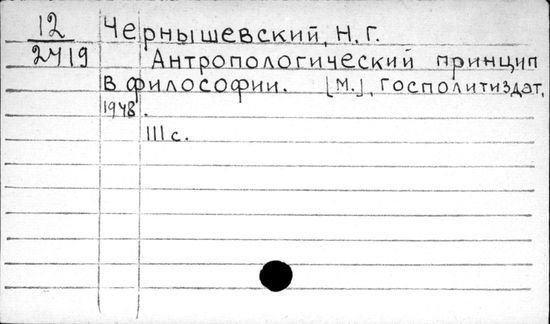 12 Чернышевский, Н. Г.
2419 Антропологический принцип
в философии. [М.], Госполитиздат,
1948.
111 с.